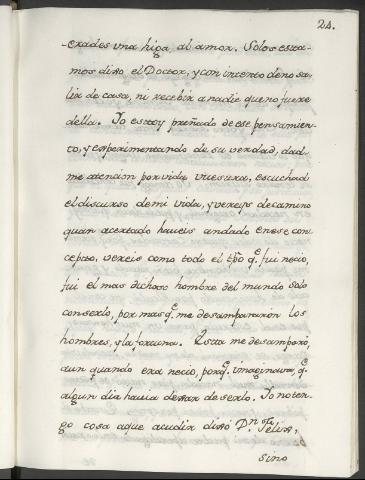 24.
-erades vna higa, al amor. Solos esta-
mos dixo el Doctor, y con intento de no sa-
lir de casa, ni recebir a nadie que no fuere
della. Yo estoy preñado de ese pensamien-
to, y esperimentando de su verdad, dad-
me atencion por vida vuestra, escuchad
el discurso de mi vida, y vereys de camino
quan acertado haueis andado en ese con-
cepto, vereis como todo el tp̃o q.e fui necio,
fui el mas dichoso hombre del mundo solo
con serlo, por mas q.e me desampararon los
hombres, y la fortuna. Esta me desamparò,
aun quando era necio, porq.e imaginaua, q.e
algun dia hauia de dexar de serlo. Yo no ten-
go cosa a que acudir dixo D.n Felix,
sino